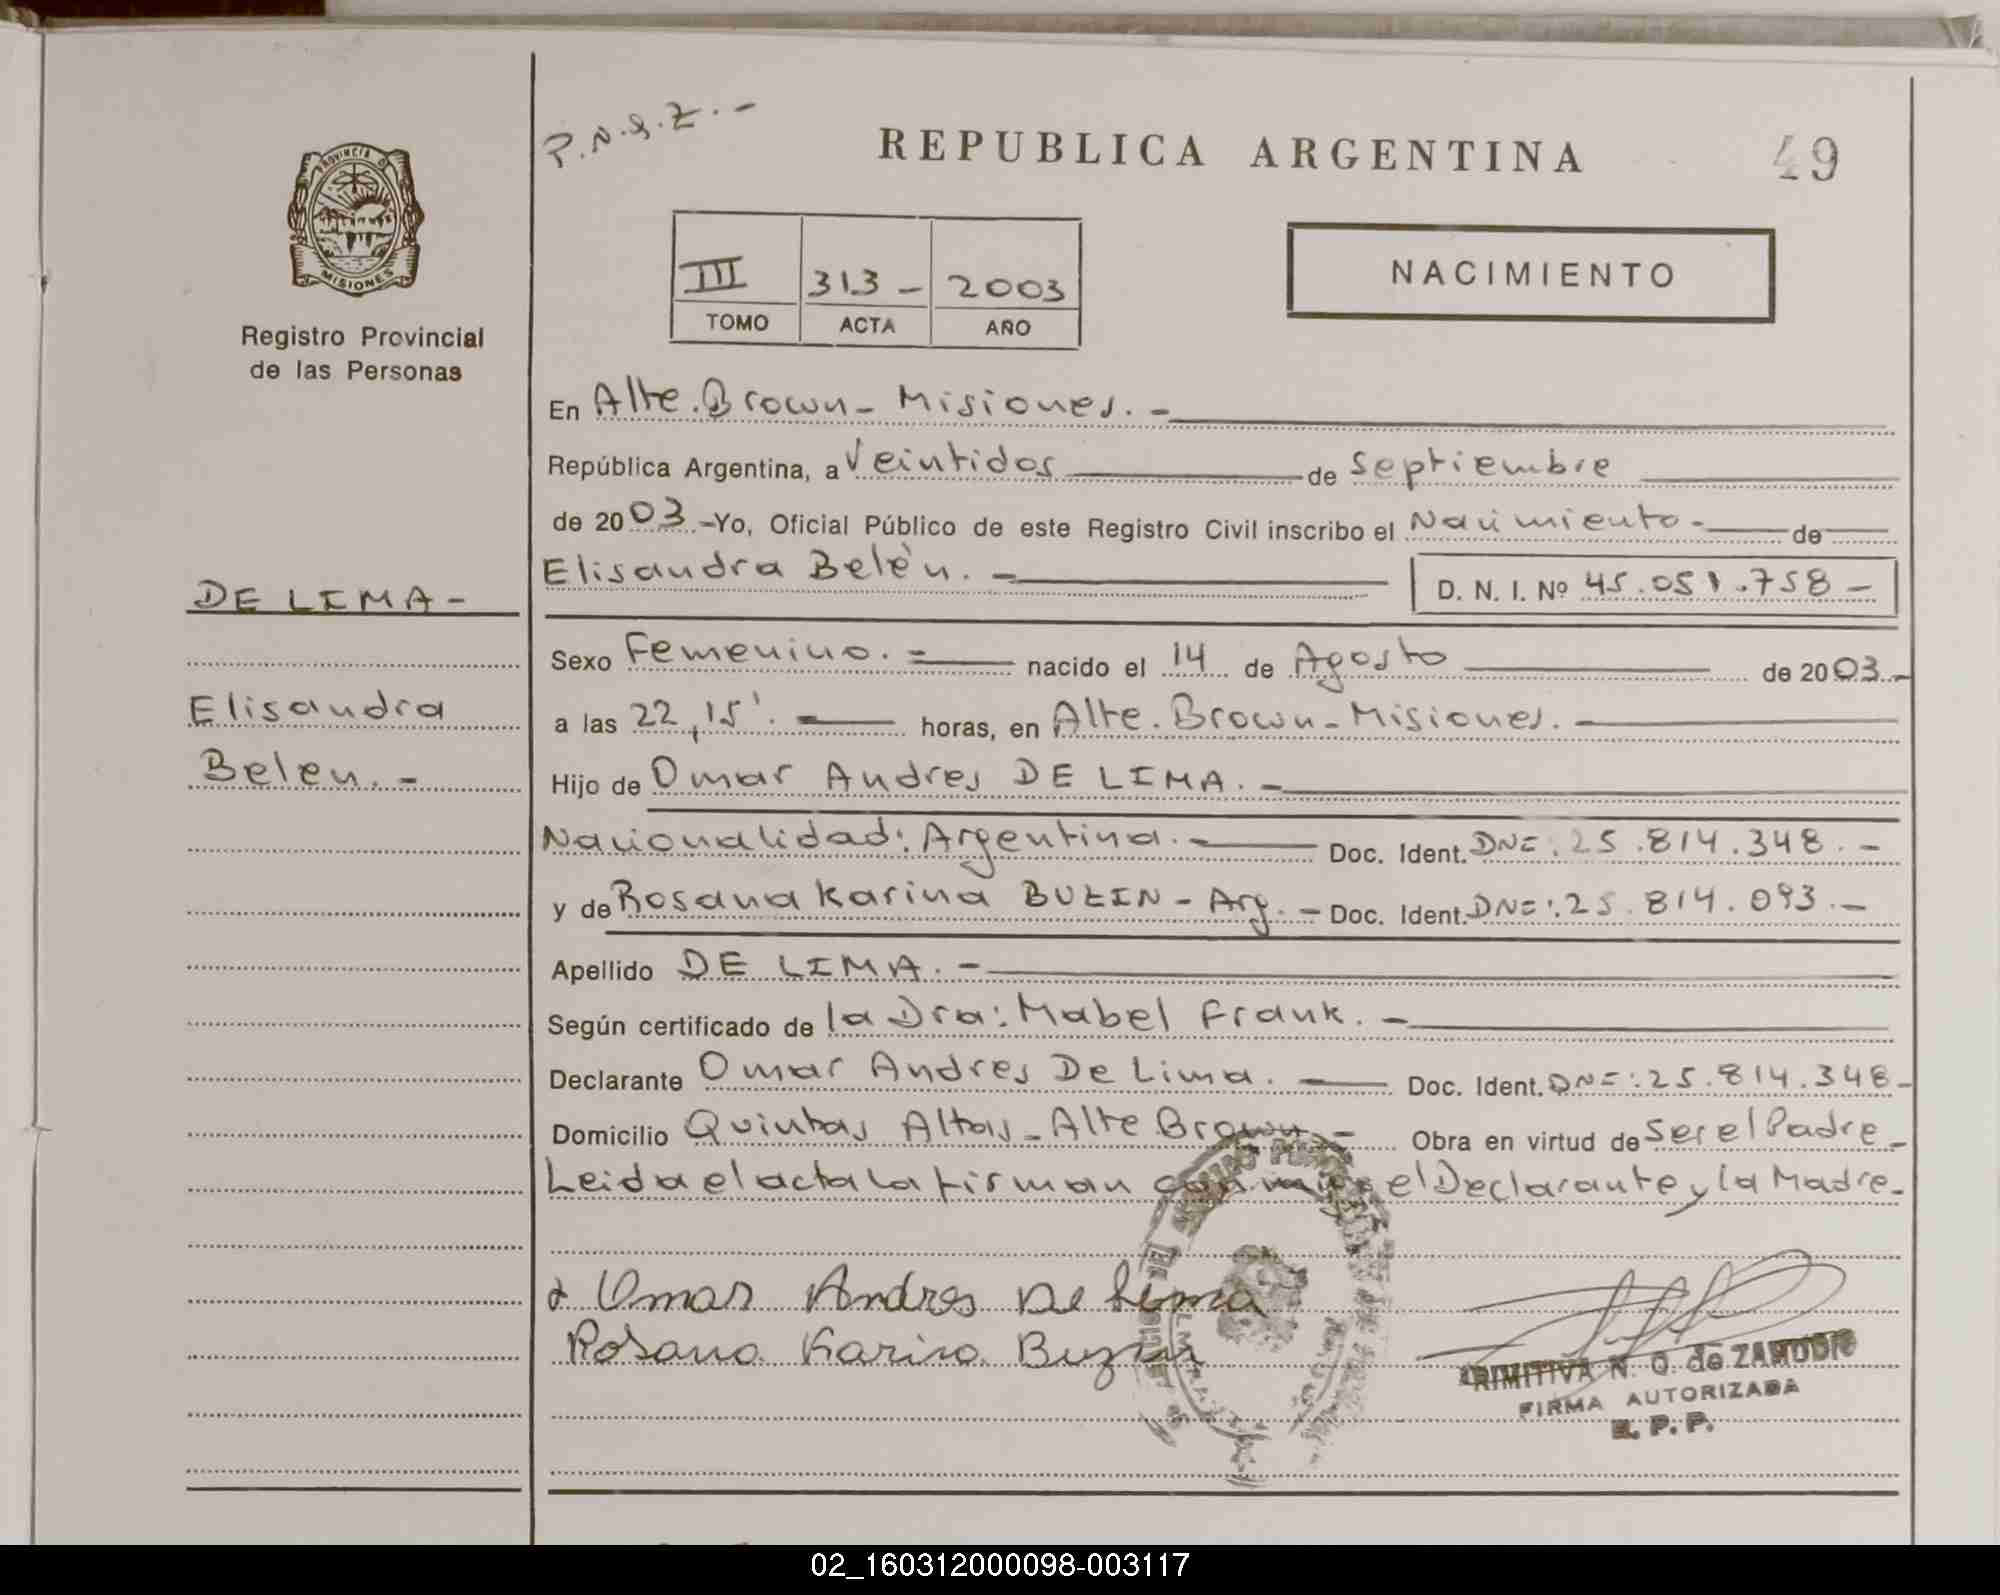 P.N.&.Z.-
REPUBLICA ARGENTINA
49
PROVINCIA D
MISIONES
Registro Provincial
de las Personas
III 313- 2003
TOMO ACTA AÑO
NACIMIENTO
En Alte.Brown- Misiones.-
República Argentina, a Veintidos de Septiembre
de 2003 -Yo, Oficial Público de este Registro Civil inscribo el Nacimiento- de
Elisandra Belén.-
D. N. I. Nº 45.051.758-
DE LIMA-
Elisandra
Belen.-
Sexo Femenino.- nacido el 14 de Agosto de 2003.-
a las 22,15'.- horas, en Alte.Brown-Misiones.-
Hijo de Omar Andres DE LIMA.-
Nacionalidad: Argentina.- Doc. Ident. DNI:25.814.348.-
y de Rosana Karina BUZIN - Arg.- Doc. Ident. DNI:25.814.093.-
Apellido DE LIMA.-
Según certificado de la Dra: Mabel Frank.-
Declarante Omar Andres De Lima.- Doc. Ident. DNI:25.814.348-
Domicilio Quintas Altas-Alte Brown- Obra en virtud de Ser el Padre-
Leida el acta la firman conmigo el Declarante y la Madre-
Omar Andres De Lima
Rosana Karina Buzin
PRIMITIVA N. O. de ZAMUDIO
FIRMA AUTORIZADA
R. P. P.
02_160312000098-003117